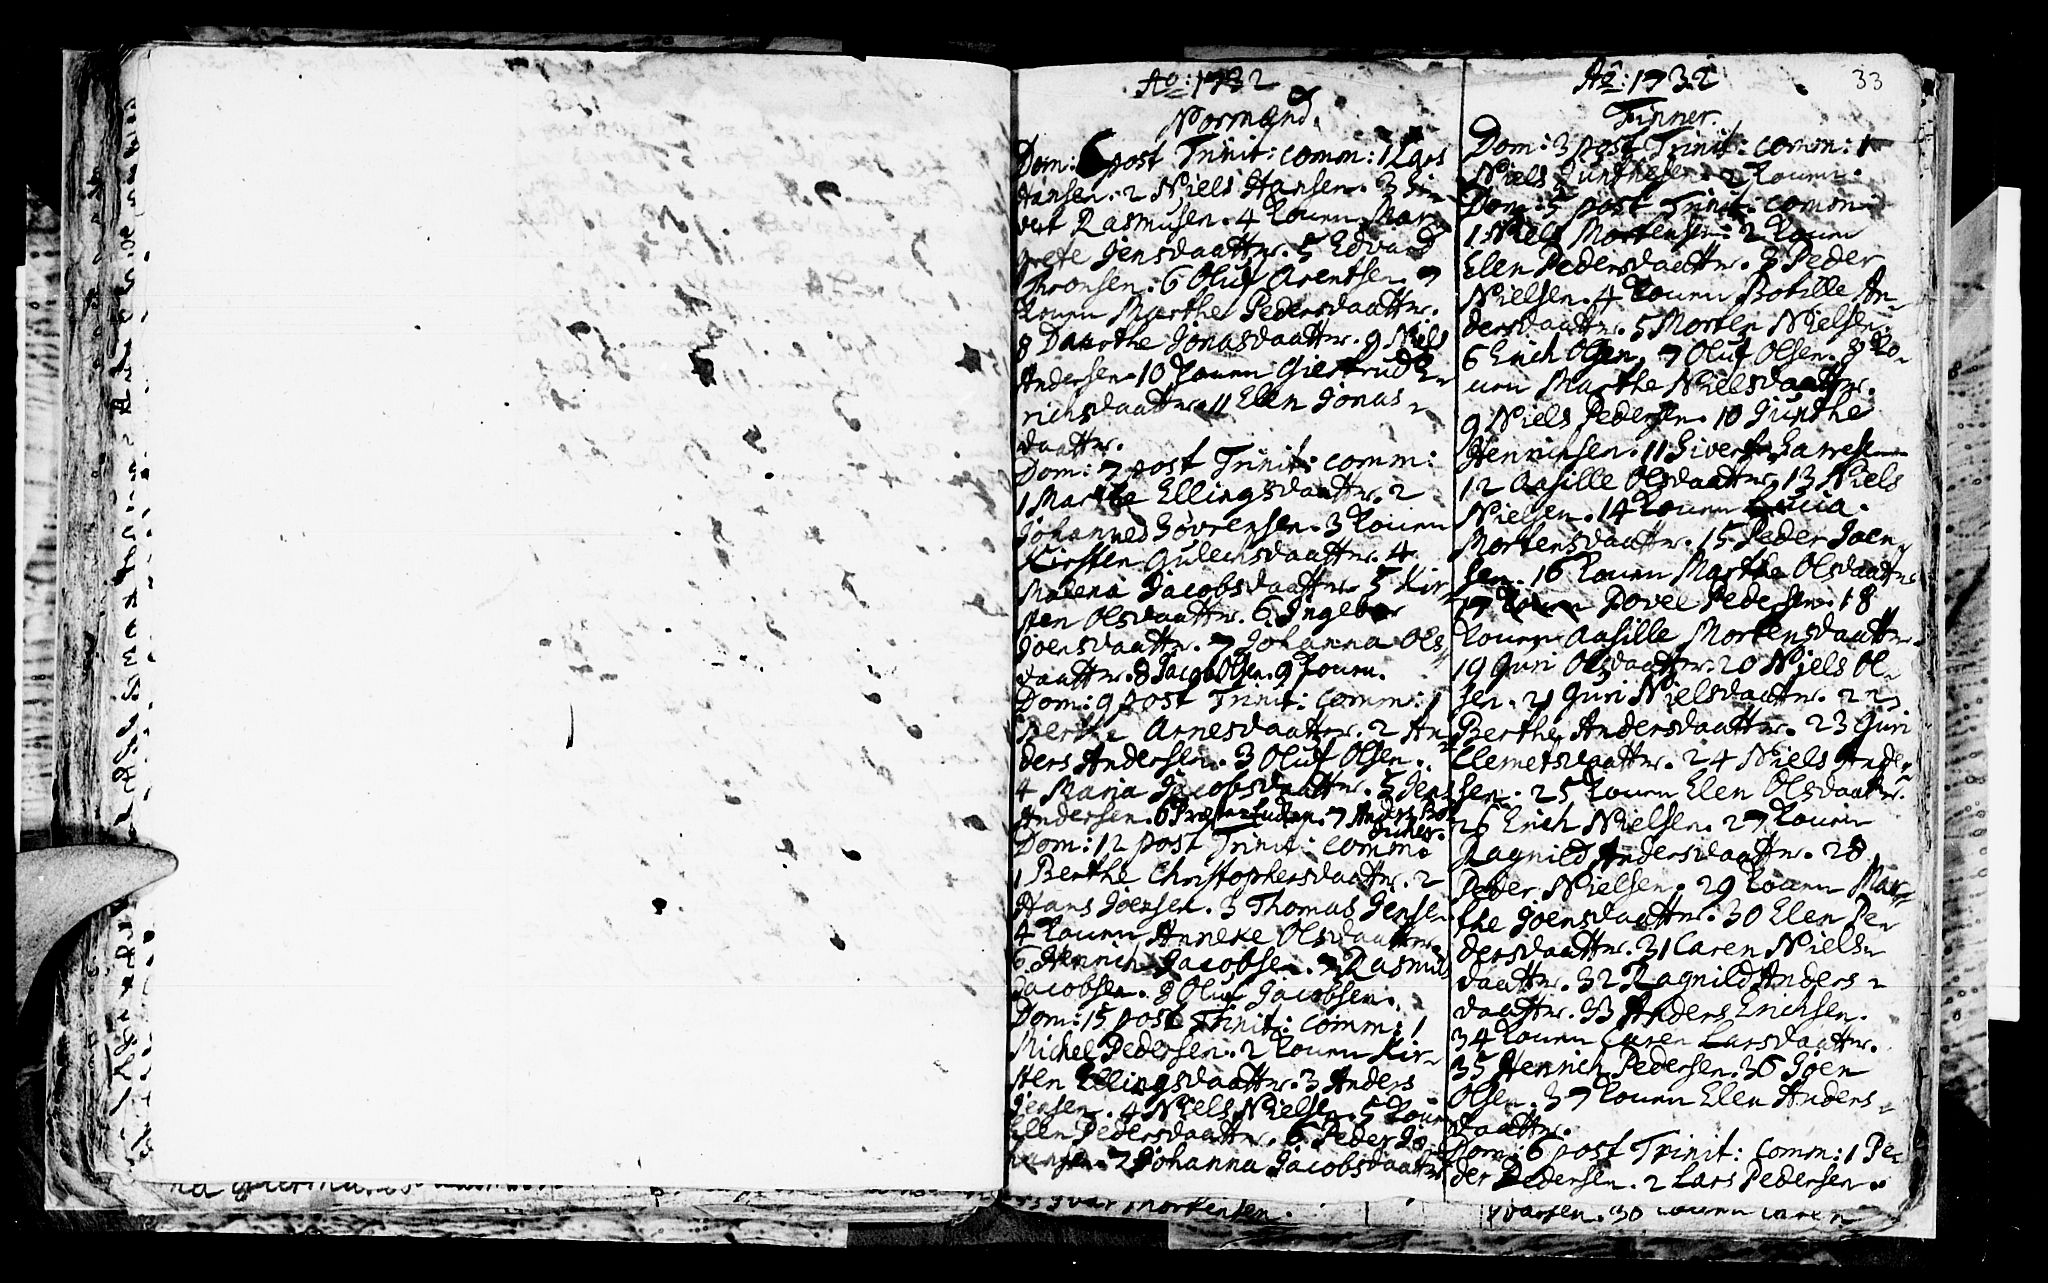 33
Ao: 1732
Normænd.
Dom: 6 post Trinit: comm: 1 Lars
Hansen. 2 Niels Hansen. 3 Si-
vert Rasmusen. 4 Konen Mar-
grete Jensdaatter. 5 Edvard
Thronsen. 6 Oluf Arentsen. 7
Konen Marthe Pedersdaatter.
8 Dorothe Jonasdaatter. 9 Niels
Andersen. 10 Konen Giertrud En-
richsdaatter. 11 Elen Jonas-
daatter.
Dom: 7 post Trinit: comm:
1 Marthe Ellingsdaatter. 2
Johannes Sövrensen. 3 Konen
Kirsten Gulichsdaatter. 4
Malena Jacobsdaatter. 5 Kir-
sten Olsdaatter. 6 Ingebor
Joensdaatter. 7 Johanna Ols-
daatter. 8 Jacob Olsen. 9 Konen.
Dom: 9 post Trinit: comm: 1
Berthe Arnesdaatter. 2 An-
ders Andersen. 3 Oluf Olsen.
4 Maria Jacobsdaatter. 5 Jens
Andersen. 6 7 Anders
Dom: 12 post Trinit: comm:
1 Berthe Christophersdaatter. 2
Hans Joensen. 3 Thomas Jensen
4 Konen Anneke Olsdaatter.
6 Henrich Jacobsen. 7 Rasmus
Jacobsen. 8 Oluf Jacobsen.
Dom: 15 post Trinit: comm: 1
Michel Pedersen. 2 Konen Kir-
sten Ellingsdaatter. 3 Anders
Jensen. 4 Niels Nielsen. 5 Konen
Elen Pedersdaatter. 6 Peder Jo-
hansen. 7 Johanna Jacobsdaatter
Ao: 1732
Finner.
Dom: 3 post Trinit: comm: 1
Niels Gunthesen. 2 Konen.
Dom: 5 post Trinit: comm
1 Niels Mortensen. 2 Konen
Elen Pedersdaatter. 3 Peder
Nielsen. 4 Konen Botille An-
dersdaatter. 5 Morten Nielsen.
6 Erich Olsen. 7 Oluf Olsen. 8 Ko-
nen Marthe Nielsdaatter.
9 Niels Pedersen. 10 Gunthe
Henrichsen. 11 Sivert Larsen
12 Aasille Olsdaatter. 13 Niels
Nielsen. 14 Konen Lucia
Mortensdaatter. 15 Peder Joen-
sen. 16 Konen Marthe Olsdaatter
17 Povel Pedersen. 18
Konen Aasille Mortensdaatter.
19 Guri Olsdaatter. 20 Niels Ol-
sen. 21 Guri Nielsdaatter. 22
Berthe Andersdaatter. 23 Guri
Clemetsdaatter. 24 Niels Ander-
sen. 25 Konen Elen Olsdaatter.
26 Erich Nielsen. 27 Konen
Ragnild Andersdaatter. 28
Peder Nielsen. 29 Konen Mar-
the Joensdaatter. 30 Elen Pe-
dersdaatter. 31 Caren Niels-
daatter. 32 Ragnild Anders-
daatter. 33 Anders Erichsen.
34 Konen Caren Larsdaatter.
35 Henrich Pedersen. 36 Joen
Olsen. 37 Konen Elen Anders-
daatter.
Dom: 6 post Trinit: comm: 1 Pe-
der Pedersen. 2 Lars Pedersen.